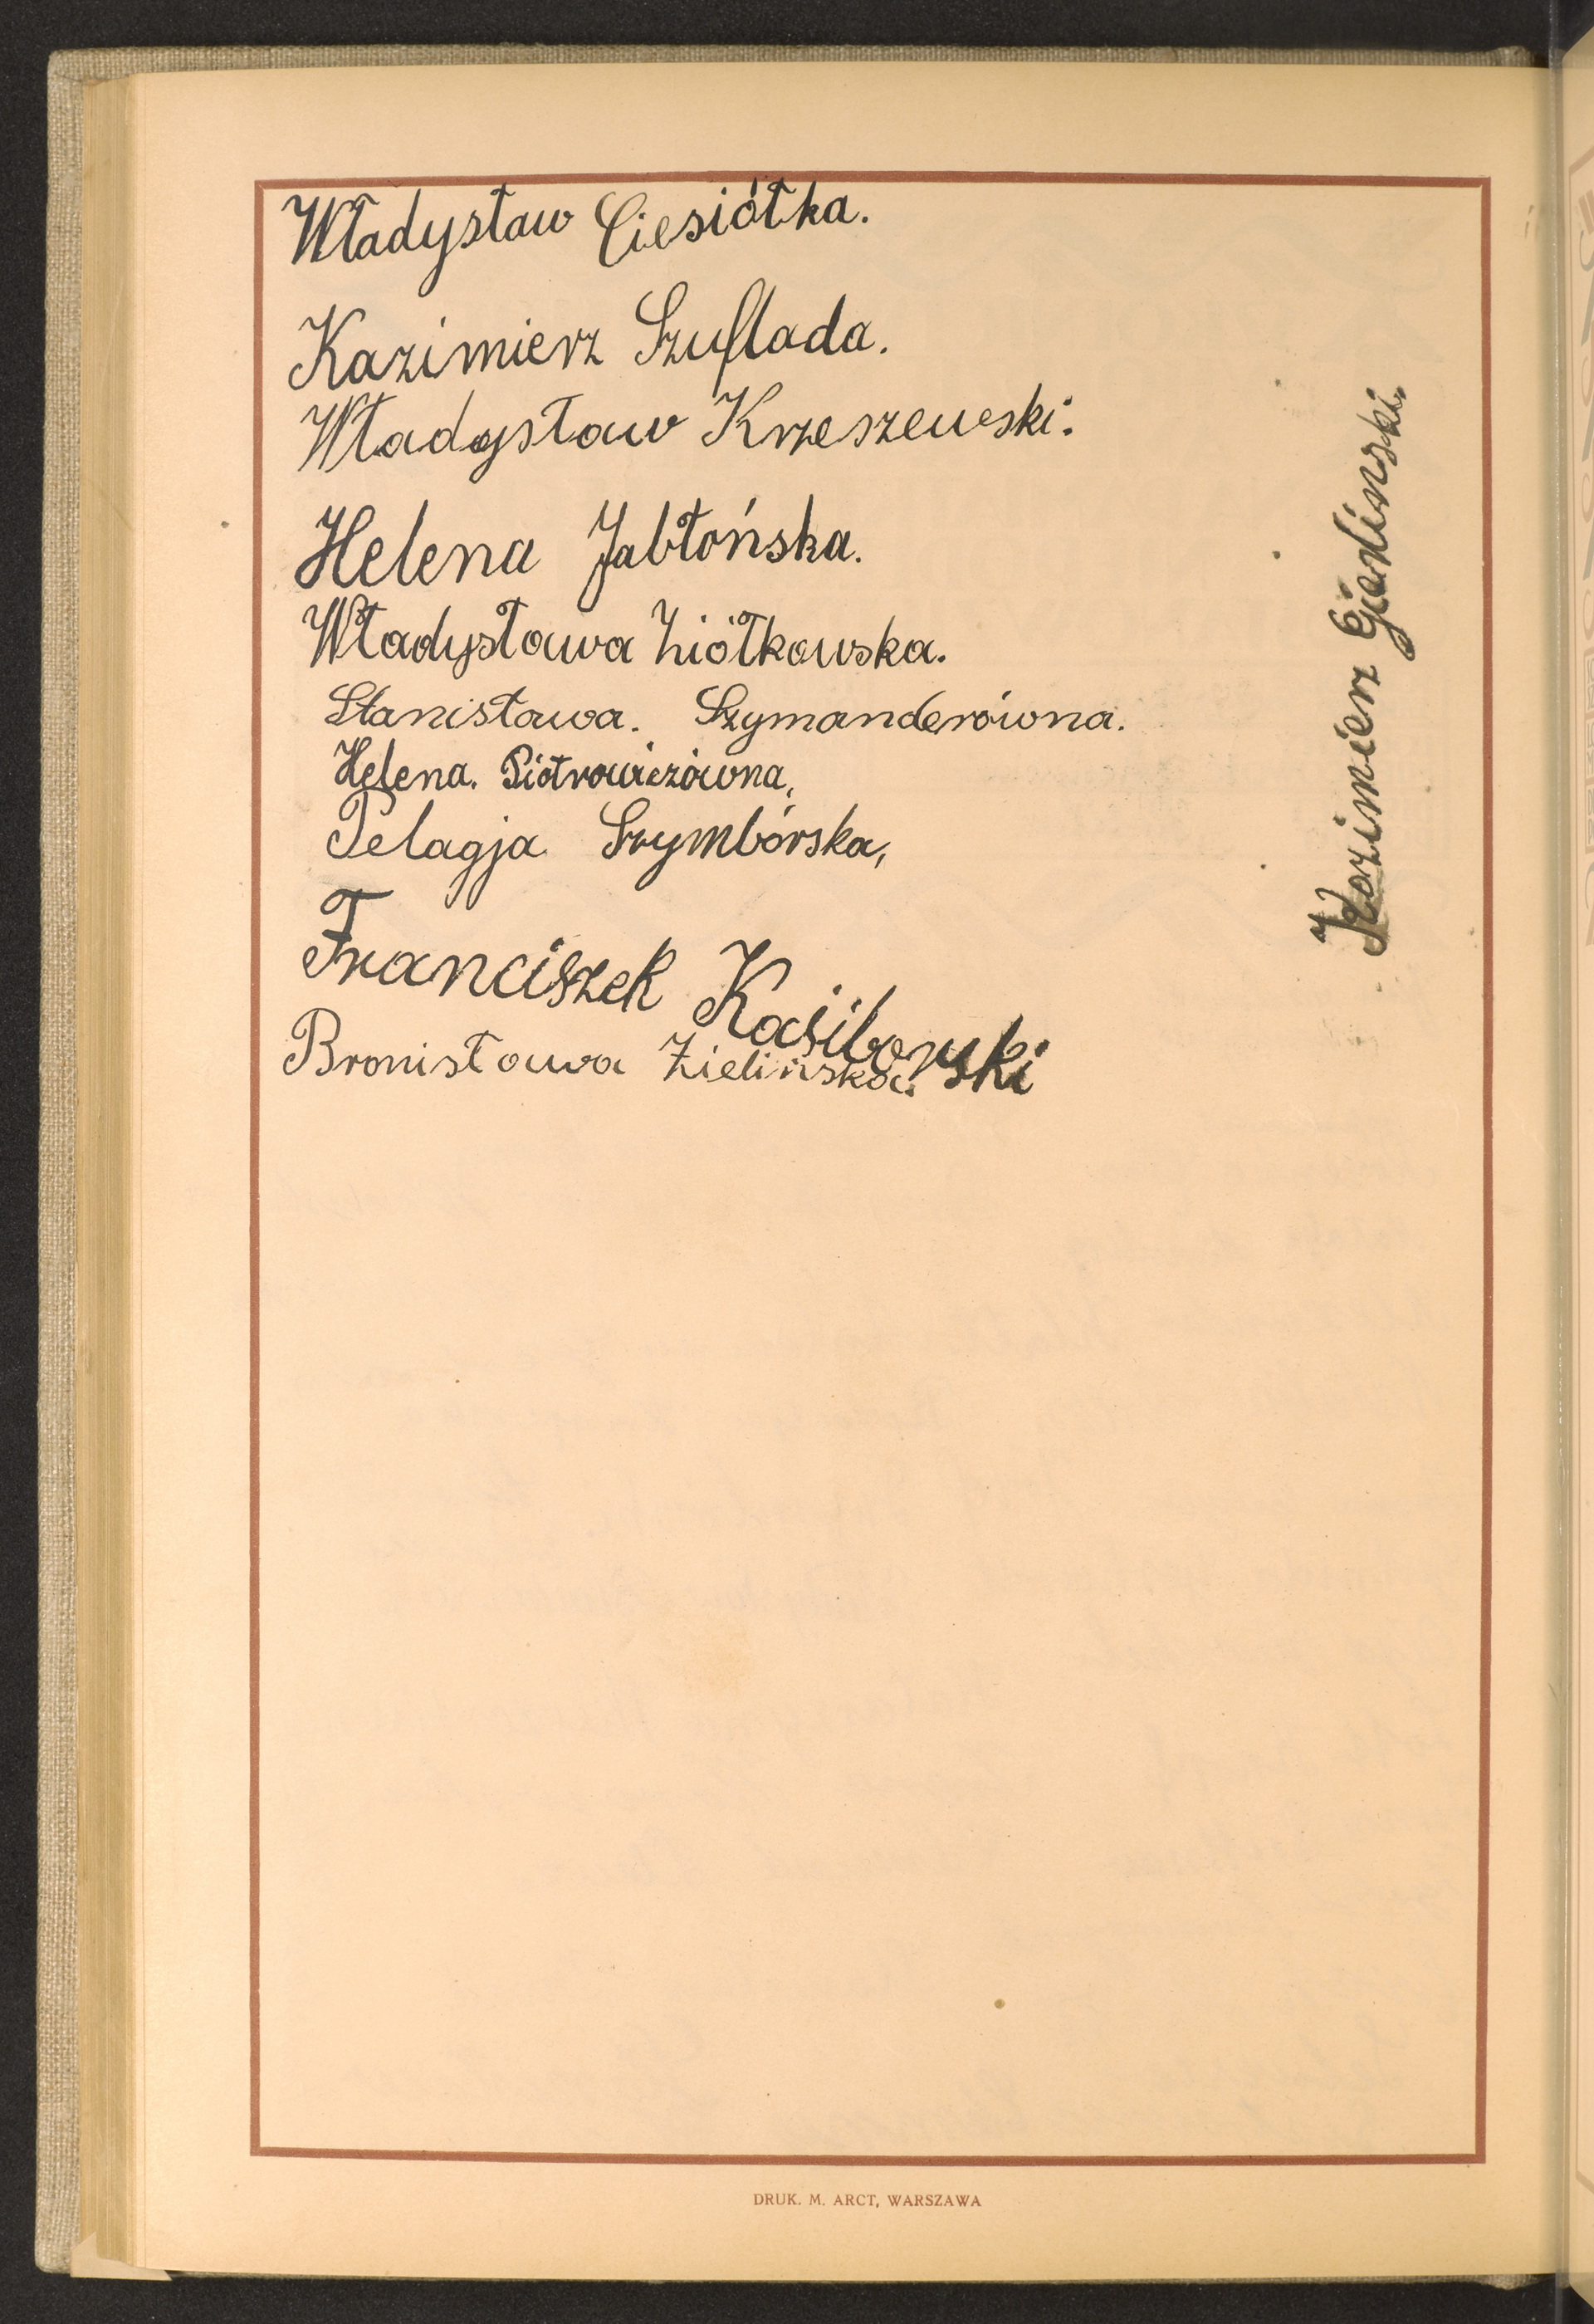 Władysław Ciesiółka.
Kazimierz Szuflada.
Władysław Krzeszewski.
Helena Jabłońska.
Władysława Ziółkowska.
Stanisława. Szymanderówna.
Helena. Piotrowiczówna,
Pelagja Szymbórska,
Franciszek Kasiborski
Bronisława Zielińska.
Kazimierz
DRUK. M. ARCT, WARSZAWA